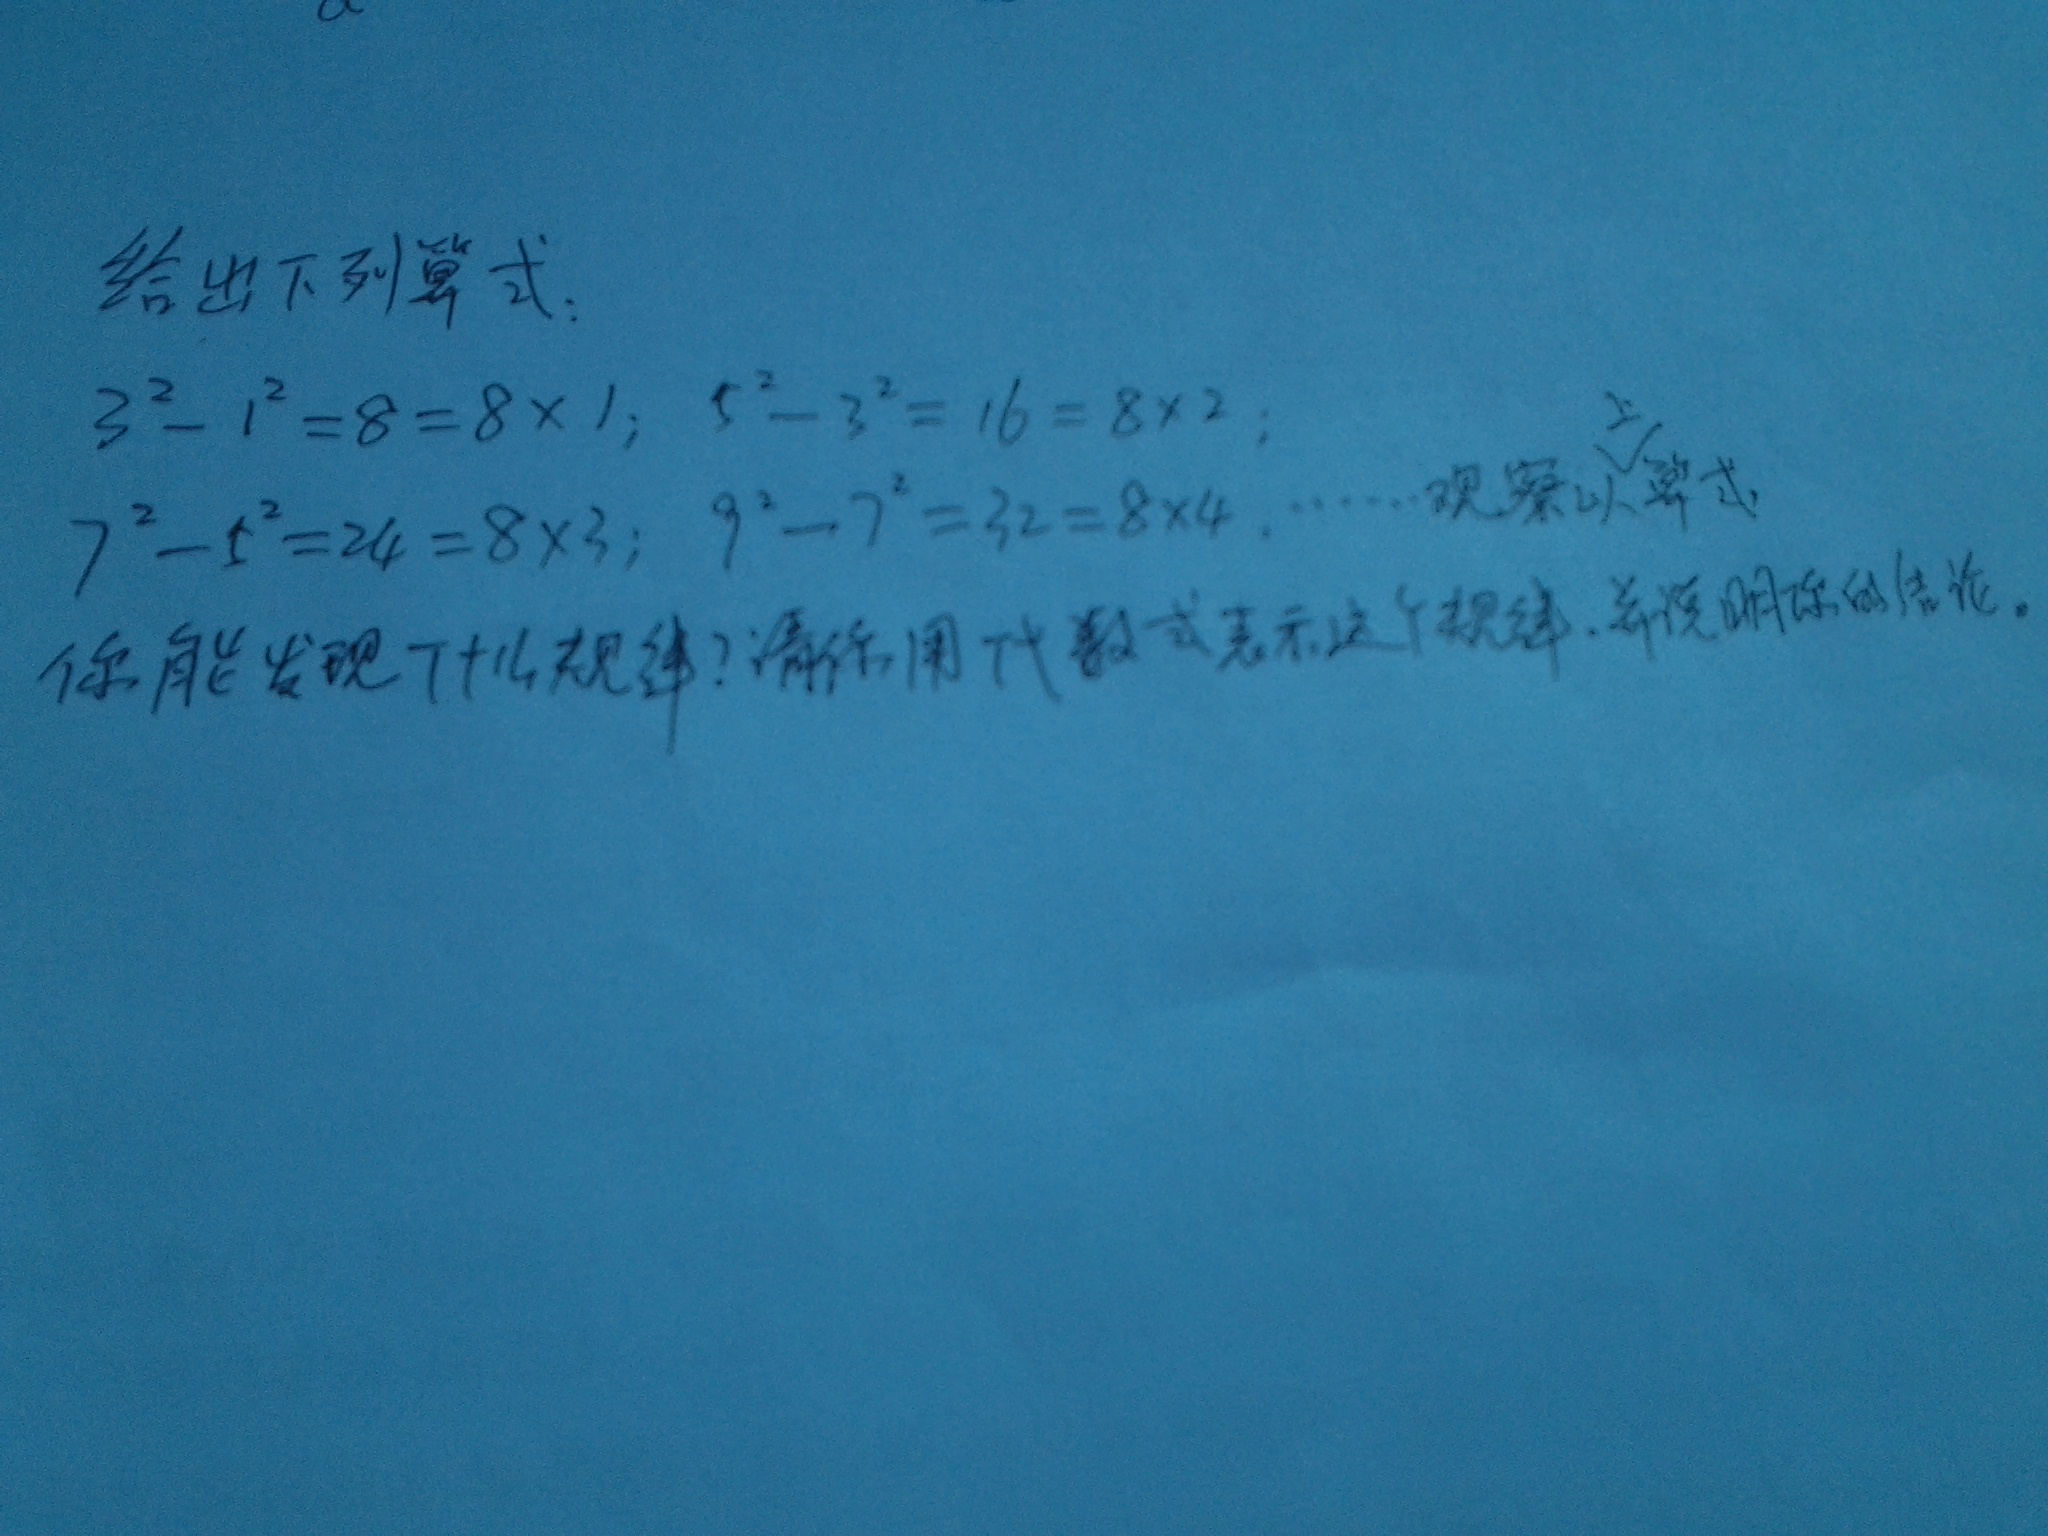 给出下列算式:
3²-1²=8=8×1; 5²-3²=16=8×2;
7²-5²=24=8×3; 9²-7²=32=8×4. ……观察以上算式
你能发现了什么规律?请你用代数式表示这个规律.并说明你的结论。